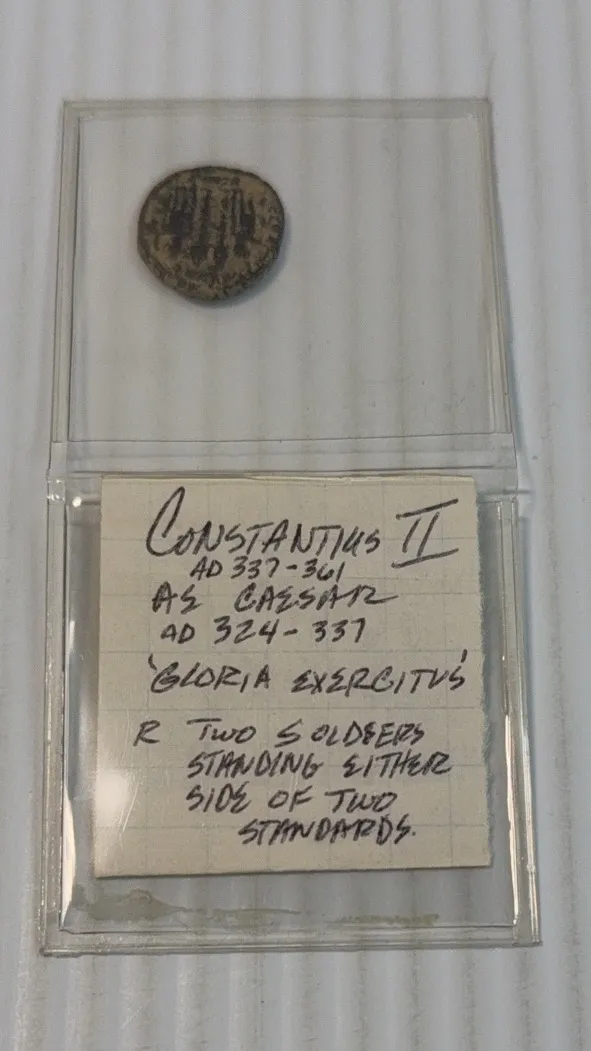 CONSTANTIUS II
AD 337-361
AS CAESAR
AD 324-337
'GLORIA EXERCITUS'
R TWO SOLDEERS
STANDING EITHER
SIDE OF TWO
STANDARDS.